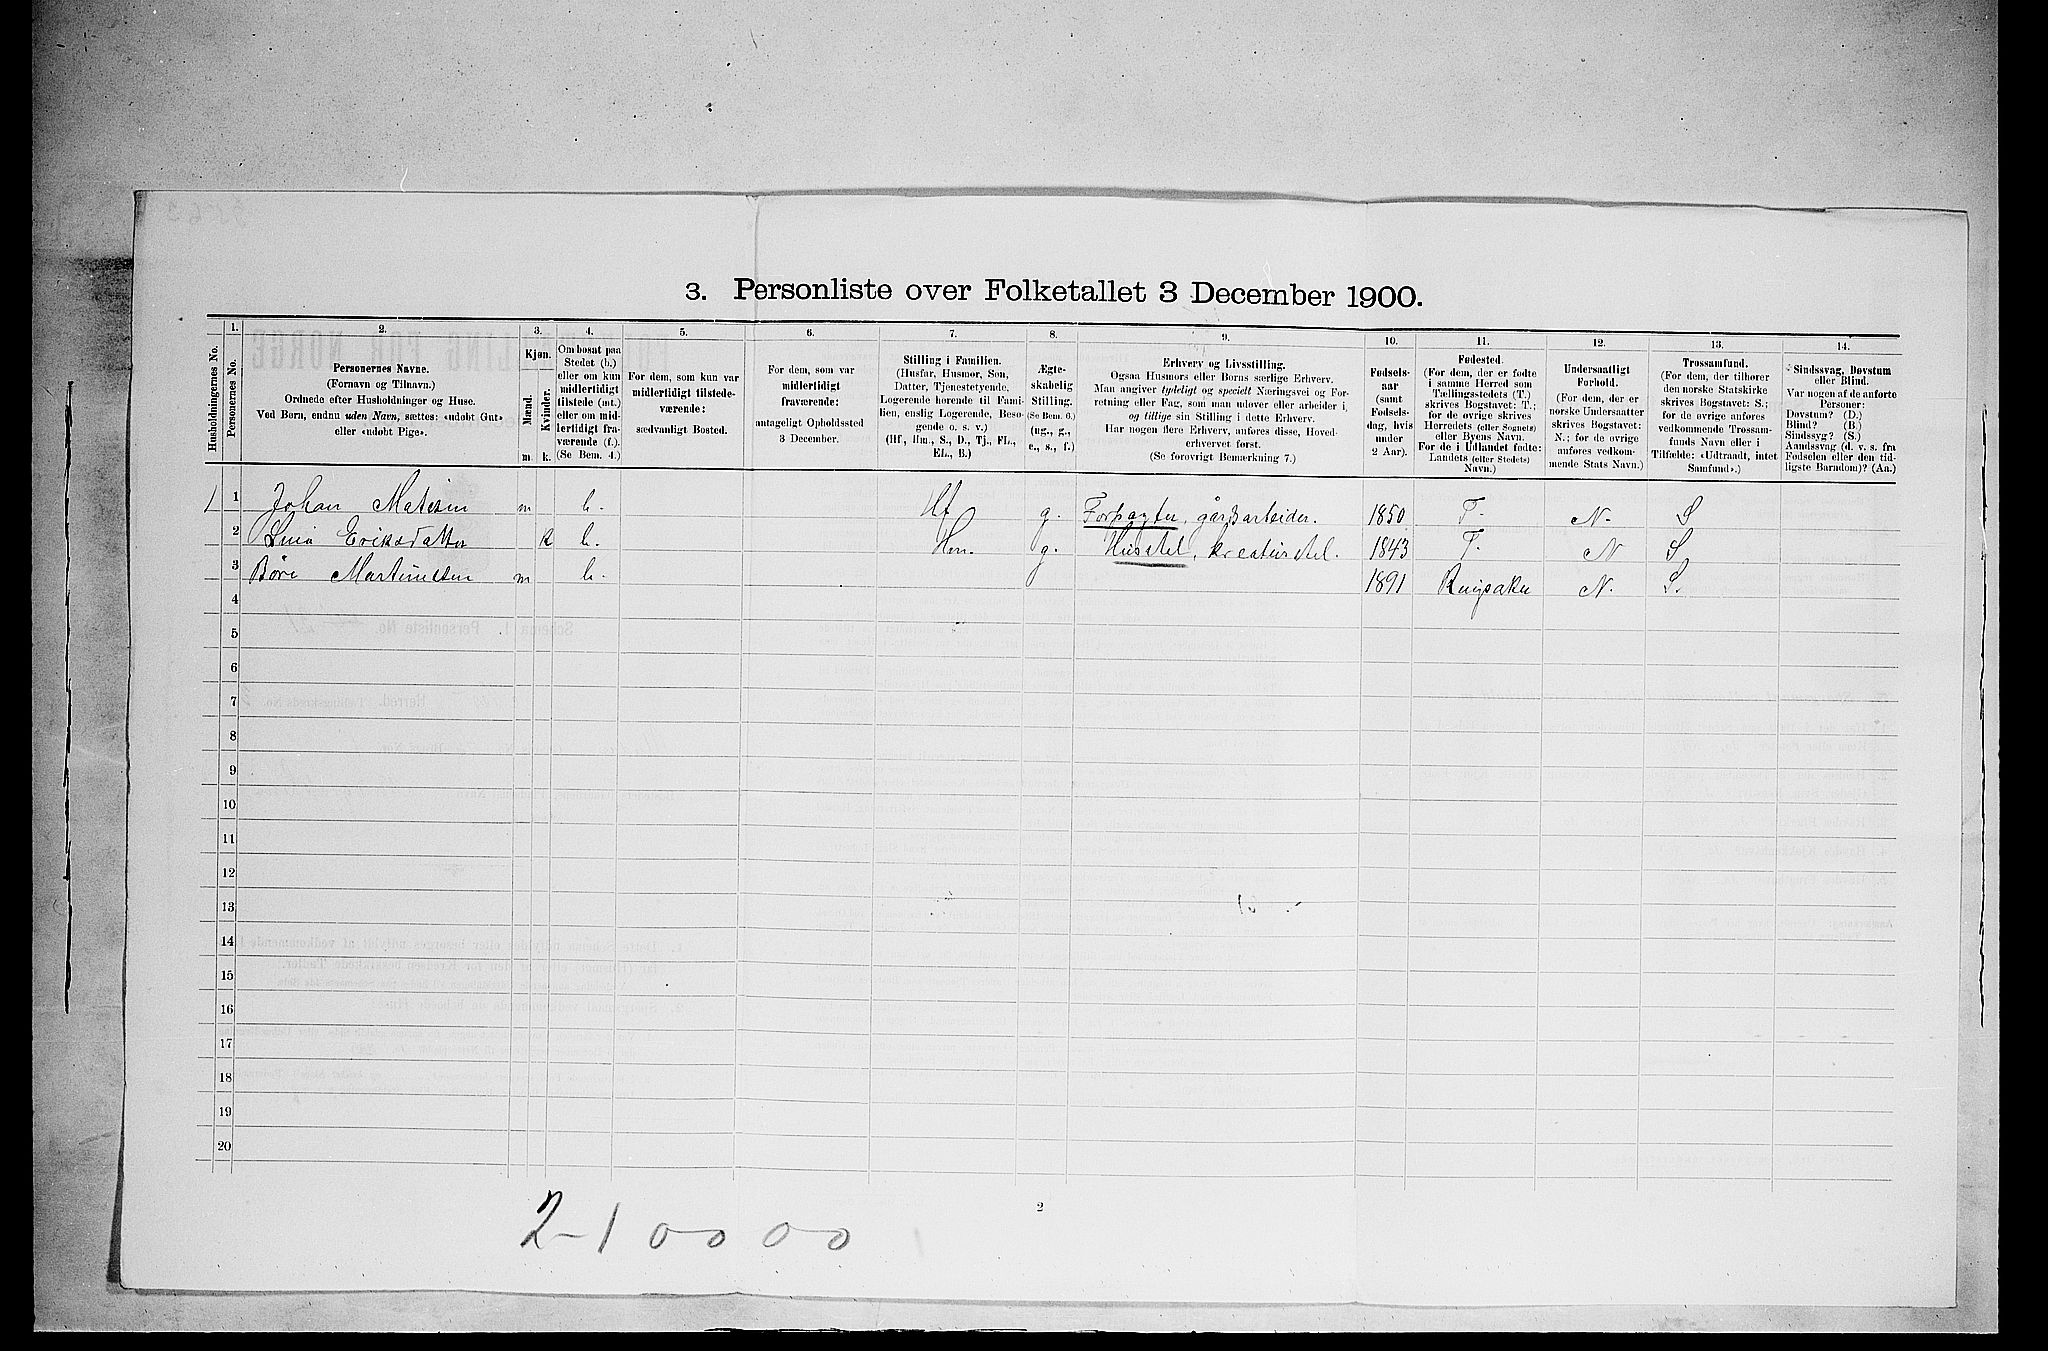 3. Personliste over Folketallet 3 December 1900.
Husholdningernes No.
1.
Personernes No.
2.
Personernes Navne.
(Fornavn og Tilnavn.)
Ordnede efter Husholdninger og Huse.
Ved Børn, endnu uden Navn, sættes: «udøbt Gut»
eller «udøbt Pige».
3.
Kjøn.
Mænd.
Kvinder.
m. k.
4.
Om bosat paa
Stedet (b.)
eller om kun
midlertidigt
tilstede (mt.)
eller om mid-
lertidigt fra-
værende (f.).
(Se Bem. 4.)
5.
For dem, som kun var
midlertidigt tilstede-
værende:
sædvanligt Bosted.
6.
For dem, som var
midlertidigt
fraværende:
antageligt Opholdssted
3 December.
7.
Stilling i Familien.
(Husfar, Husmor, Søn,
Datter, Tjenestetyende,
Logerende hørende til Fami-
lien, enslig Logerende, Besø-
gende o. s. v.)
(Hf, Hm., S., D., Tj., FL.,
EL., B.)
8.
Ægte-
skabelig
Stilling.
(Se Bem. 6.)
(ug., g.,
e., s., f.)
9.
Erhverv og Livsstilling.
Ogsaa Husmors eller Børns særlige Erhverv.
Man angiver tydeligt og specielt Næringsvei og For-
retning eller Fag, som man udøver eller arbeider i,
og tillige sin Stilling i dette Erhverv.
Har nogen flere Erhverv, anføres disse, Hoved-
erhvervet først.
(Se forøvrigt Bemærkning 7.)
10.
Fødsels-
aar
(samt
Fødsels-
dag, hvis
under
2 Aar).
11.
Fødested.
(For dem, der er fødte
i samme Herred som
Tællingsstedets (T.)
skrives Bogstavet: T.;
for de øvrige skrives
Herredets (eller Sognets)
eller Byens Navn.
For de i Udlandet fødte:
Landets (eller Stedets)
Navn.)
12.
Undersaatligt
Forhold.
(For dem, der er
norske Undersaatter
skrives Bogstavet:
N.; for de øvrige
anføres vedkom-
mende Stats Navn.)
13.
Trossamfund.
(For dem, der tilhører
den norske Statskirke
skrives Bogstavet: S.;
for de øvrige anføres
vedkommende Trossam-
funds Navn eller i
Tilfælde: «Udtraadt, intet
Samfund».)
14.
Sindssvag, Døvstum
eller Blind.
Var nogen af de anførte
Personer:
Døvstum? (D.)
Blind? (B.)
Sindssyg? (S.)
Aandssvag (d. v. s. fra
Fødselen eller den tid-
ligste Barndom)? (Aa.)
1 1 Johan m b. Hf g. Forpagter, gårdsarbeider. 1850 T. N. S
2 Eriksdatter k b. Hm. g. Husstel, kreaturstel. 1843 T. N S.
3 Martinussen m b. 1891 Ringsaker N. S.
4
5
6
7
8
9
10
11
12
13
14
15
16
17
18
19
20
2
2-1 0-0 0-0